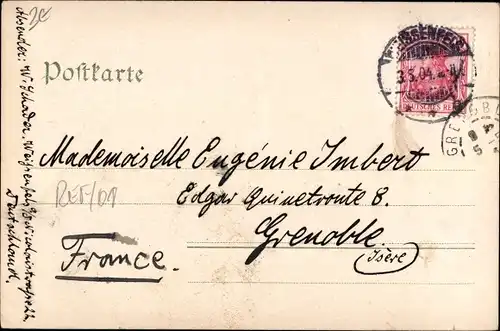 Postkarte
WEISSENFELS
3.5.04.
DEUTSCHES REICH
GRENOBLE
Mademoiselle Eugénie Imbert
Edgar Quinetroute 8.
Grenoble.
(Isère)
France.
REF/01
Absender: W. Schader, Weißenfels a/S
Deutschland.